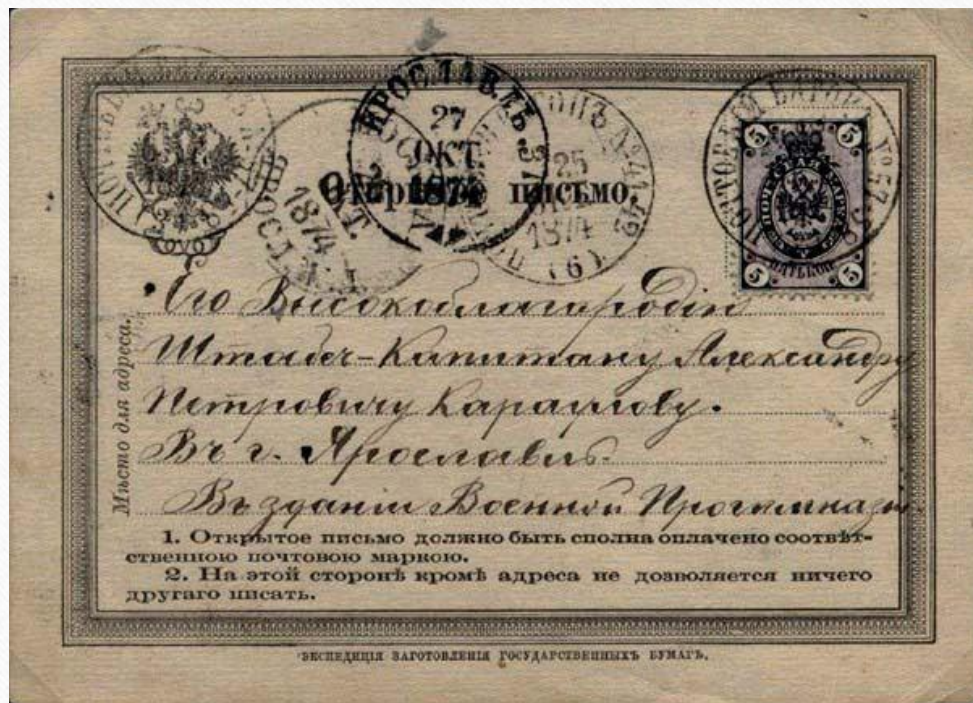 ЯРОСЛАВЛЬ
27
ОКТ.
1874
25
1874
(6)
1874
ПОЧТОВЫЙ ВАГОНЪ
5 5
ПЯТЬ КОП.
5 5
Открытое письмо.
Его Высокоблагородію
Штабсъ-Капитану Александру
Петровичу Караулову.
Въ г. Ярославлѣ.
Въ зданіи Военной Прогимназіи.
Мѣсто для адреса.
1. Открытое письмо должно быть сполна оплачено соотвѣт-
ственною почтовою маркою.
2. На этой сторонѣ кромѣ адреса не дозволяется ничего
другаго писать.
ЭКСПЕДИЦІЯ ЗАГОТОВЛЕНІЯ ГОСУДАРСТВЕННЫХЪ БУМАГЪ.